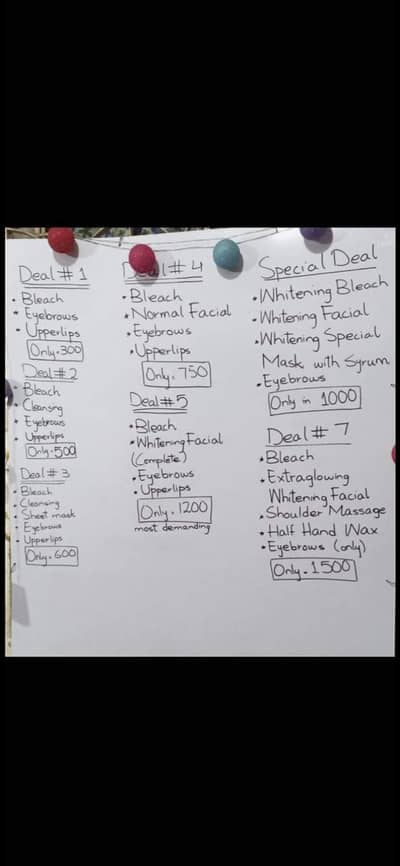 Deal # 1
• Bleach
• Eyebrows
• Upperlips
Only.300
Deal #2
• Bleach
• Cleansing
• Eyebrows
• Upperlips
Only.500
Deal # 3
• Bleach
• Cleansing
• Sheet mask
• Eyebrows
• Upperlips
Only.600
Deal # 4
• Bleach
• Normal Facial
• Eyebrows
• Upperlips
Only. 750
Deal #5
• Bleach
• Whitening Facial
(Complete)
• Eyebrows
• Upperlips
Only. 1200
most demanding
Special Deal
• Whitening Bleach
• Whitening Facial
• Whitening Special
Mask with Syrum
• Eyebrows
Only in 1000
Deal # 7
• Bleach
• Extraglowing
Whitening Facial
• Shoulder Massage
• Half Hand Wax
• Eyebrows (only)
Only. 1500